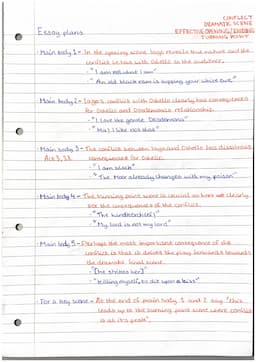 CONFLICT
DRAMATIC SCENE
Essay plans
EFFECTIVE OPENING/ENDING
TURNING POINT
Main body 1 - In the opening scene Iago reveals his nature and the
conflict he has with Othello to the audience.
- "I am not what I am"
- "An old black ram is tupping your white ewe"
Main body 2 - Iago's conflict with Othello clearly has consequences
in Othello and Desdemona's relationship
- "I love the gentle Desdemona"
- "Ha! I like not that"
Main body 3 - The conflict between Iago and Othello has disastrous
Act 3, S3. consequences for Othello.
- "I am black"
- "The Moor already changes with my poison"
Main body 4 - The turning point scene is crucial as here we clearly
see the consequences of the conflict.
- "The handkerchief!"
- "My lord is not my lord"
Main body 5 - Perhaps the most important consequence of the
conflict is that it drives the play forwards towards
the dramatic final scene.
- "[he strikes her]"
- "killing myself, to die upon a kiss"
For a key scene - At the end of main body 3 and 2 say "this
leads up to the turning point scene where conflict
is at its peak".